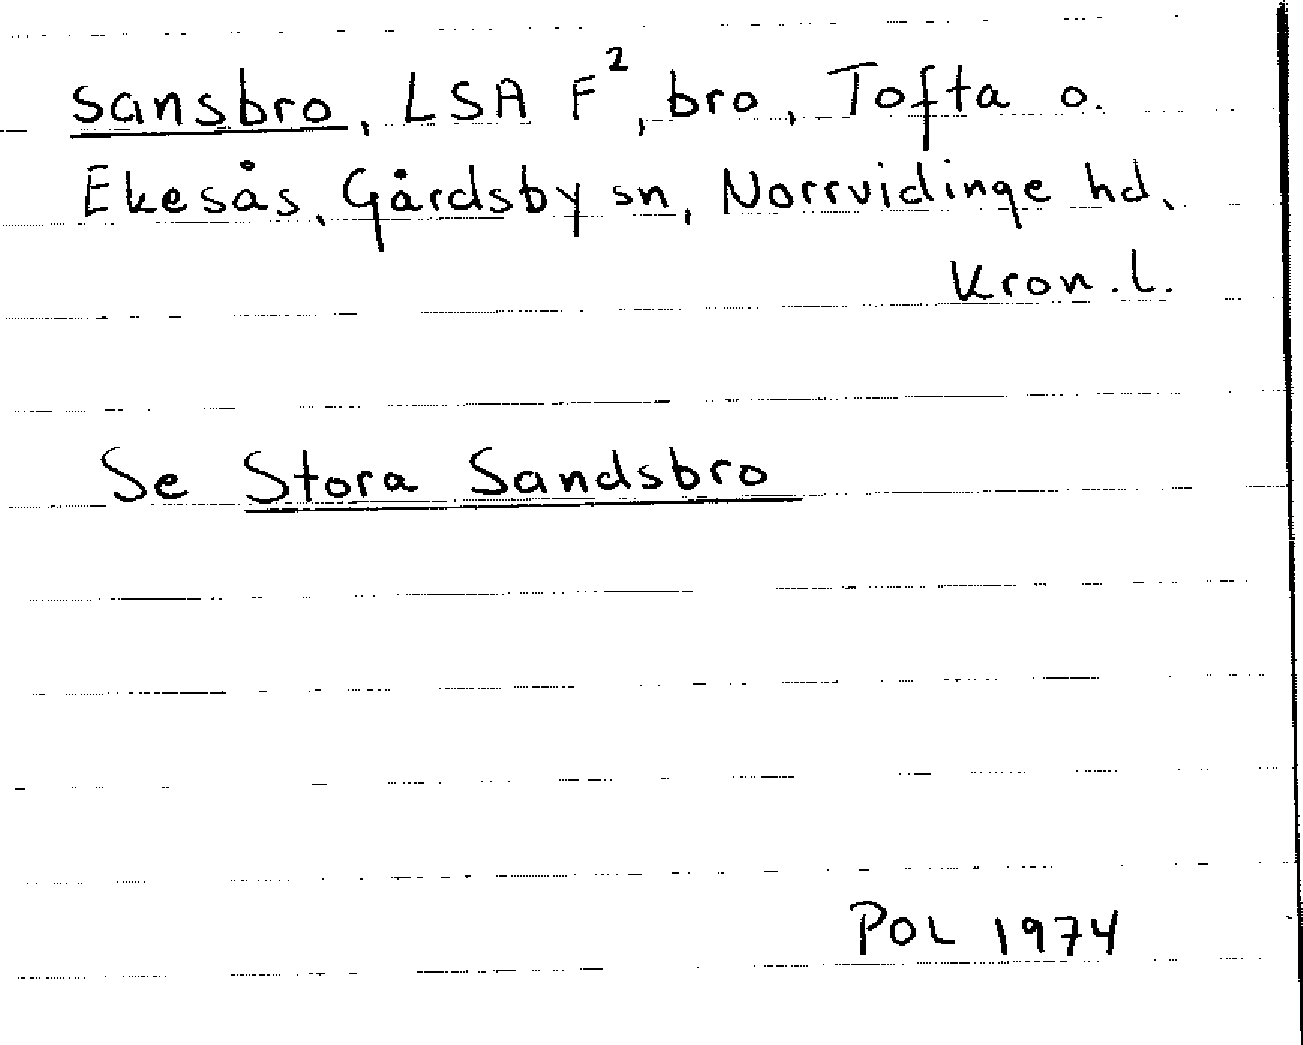 sansbro, LSA F², bro, Tofta o.
Ekesås, Gårdsby sn, Norrvidinge hd,
Kron. l.
Se Stora Sandsbro
POL 1974